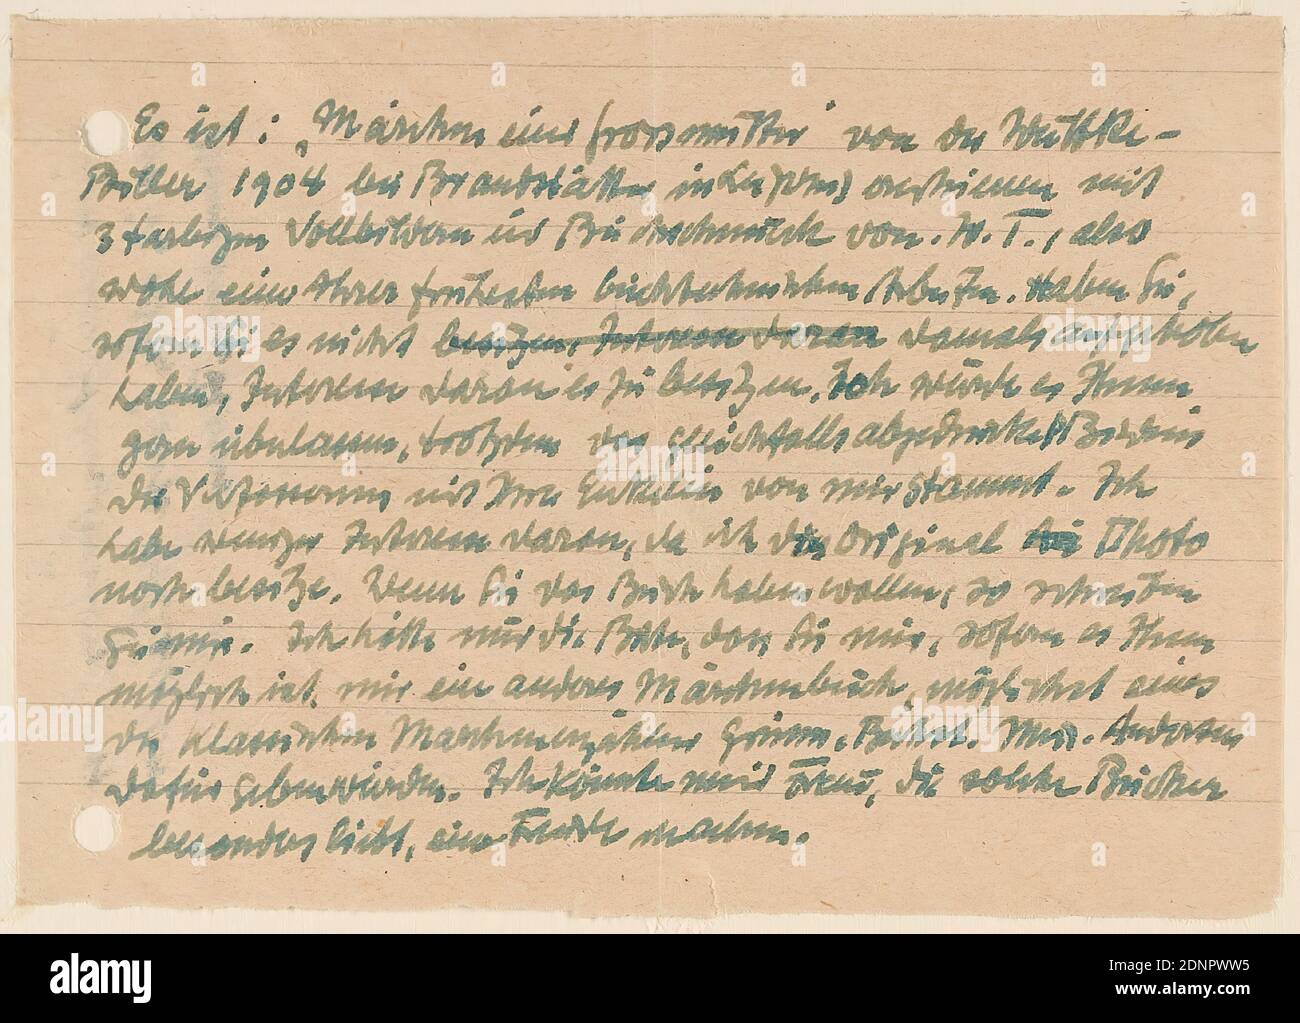 Es ist: „Märchen einer Grossmutter" von der Wuttke-
Biller 1904 bei Brandstätter in Leipzig erschienen mit
3 farbigen Vollbildern und Buchschmuck von H. T., also
wohl eine Ihrer frühesten buchtechnischen Arbeiten. Haben Sie,
sofern Sie es nicht besitzen, Interesse daran damals aufgehoben
haben, Interesse daran es zu besitzen. Ich würde es Ihnen
gern überlassen, trotzdem das gleichfalls abgedruckte
der mit Ihrer Enkelin von mir stammt. Ich
habe weniger Interesse daran, da ich das Original Photo
noch besitze. Wenn Sie das Buch haben wollen, so schreiben
Sie mir. Ich hätte nur die Bitte, dass Sie mir, sofern es Ihnen
möglich ist mir ein anderes Märchenbuch, möglichst eines
der klassischen Märchenerzähler Grimm, Andersen
dafür geben würden. Ich könnte meiner Frau, die solche Bücher
besonders liebt, eine Freude machen.
alamy
Image ID: 2DNPWW5
www.alamy.com